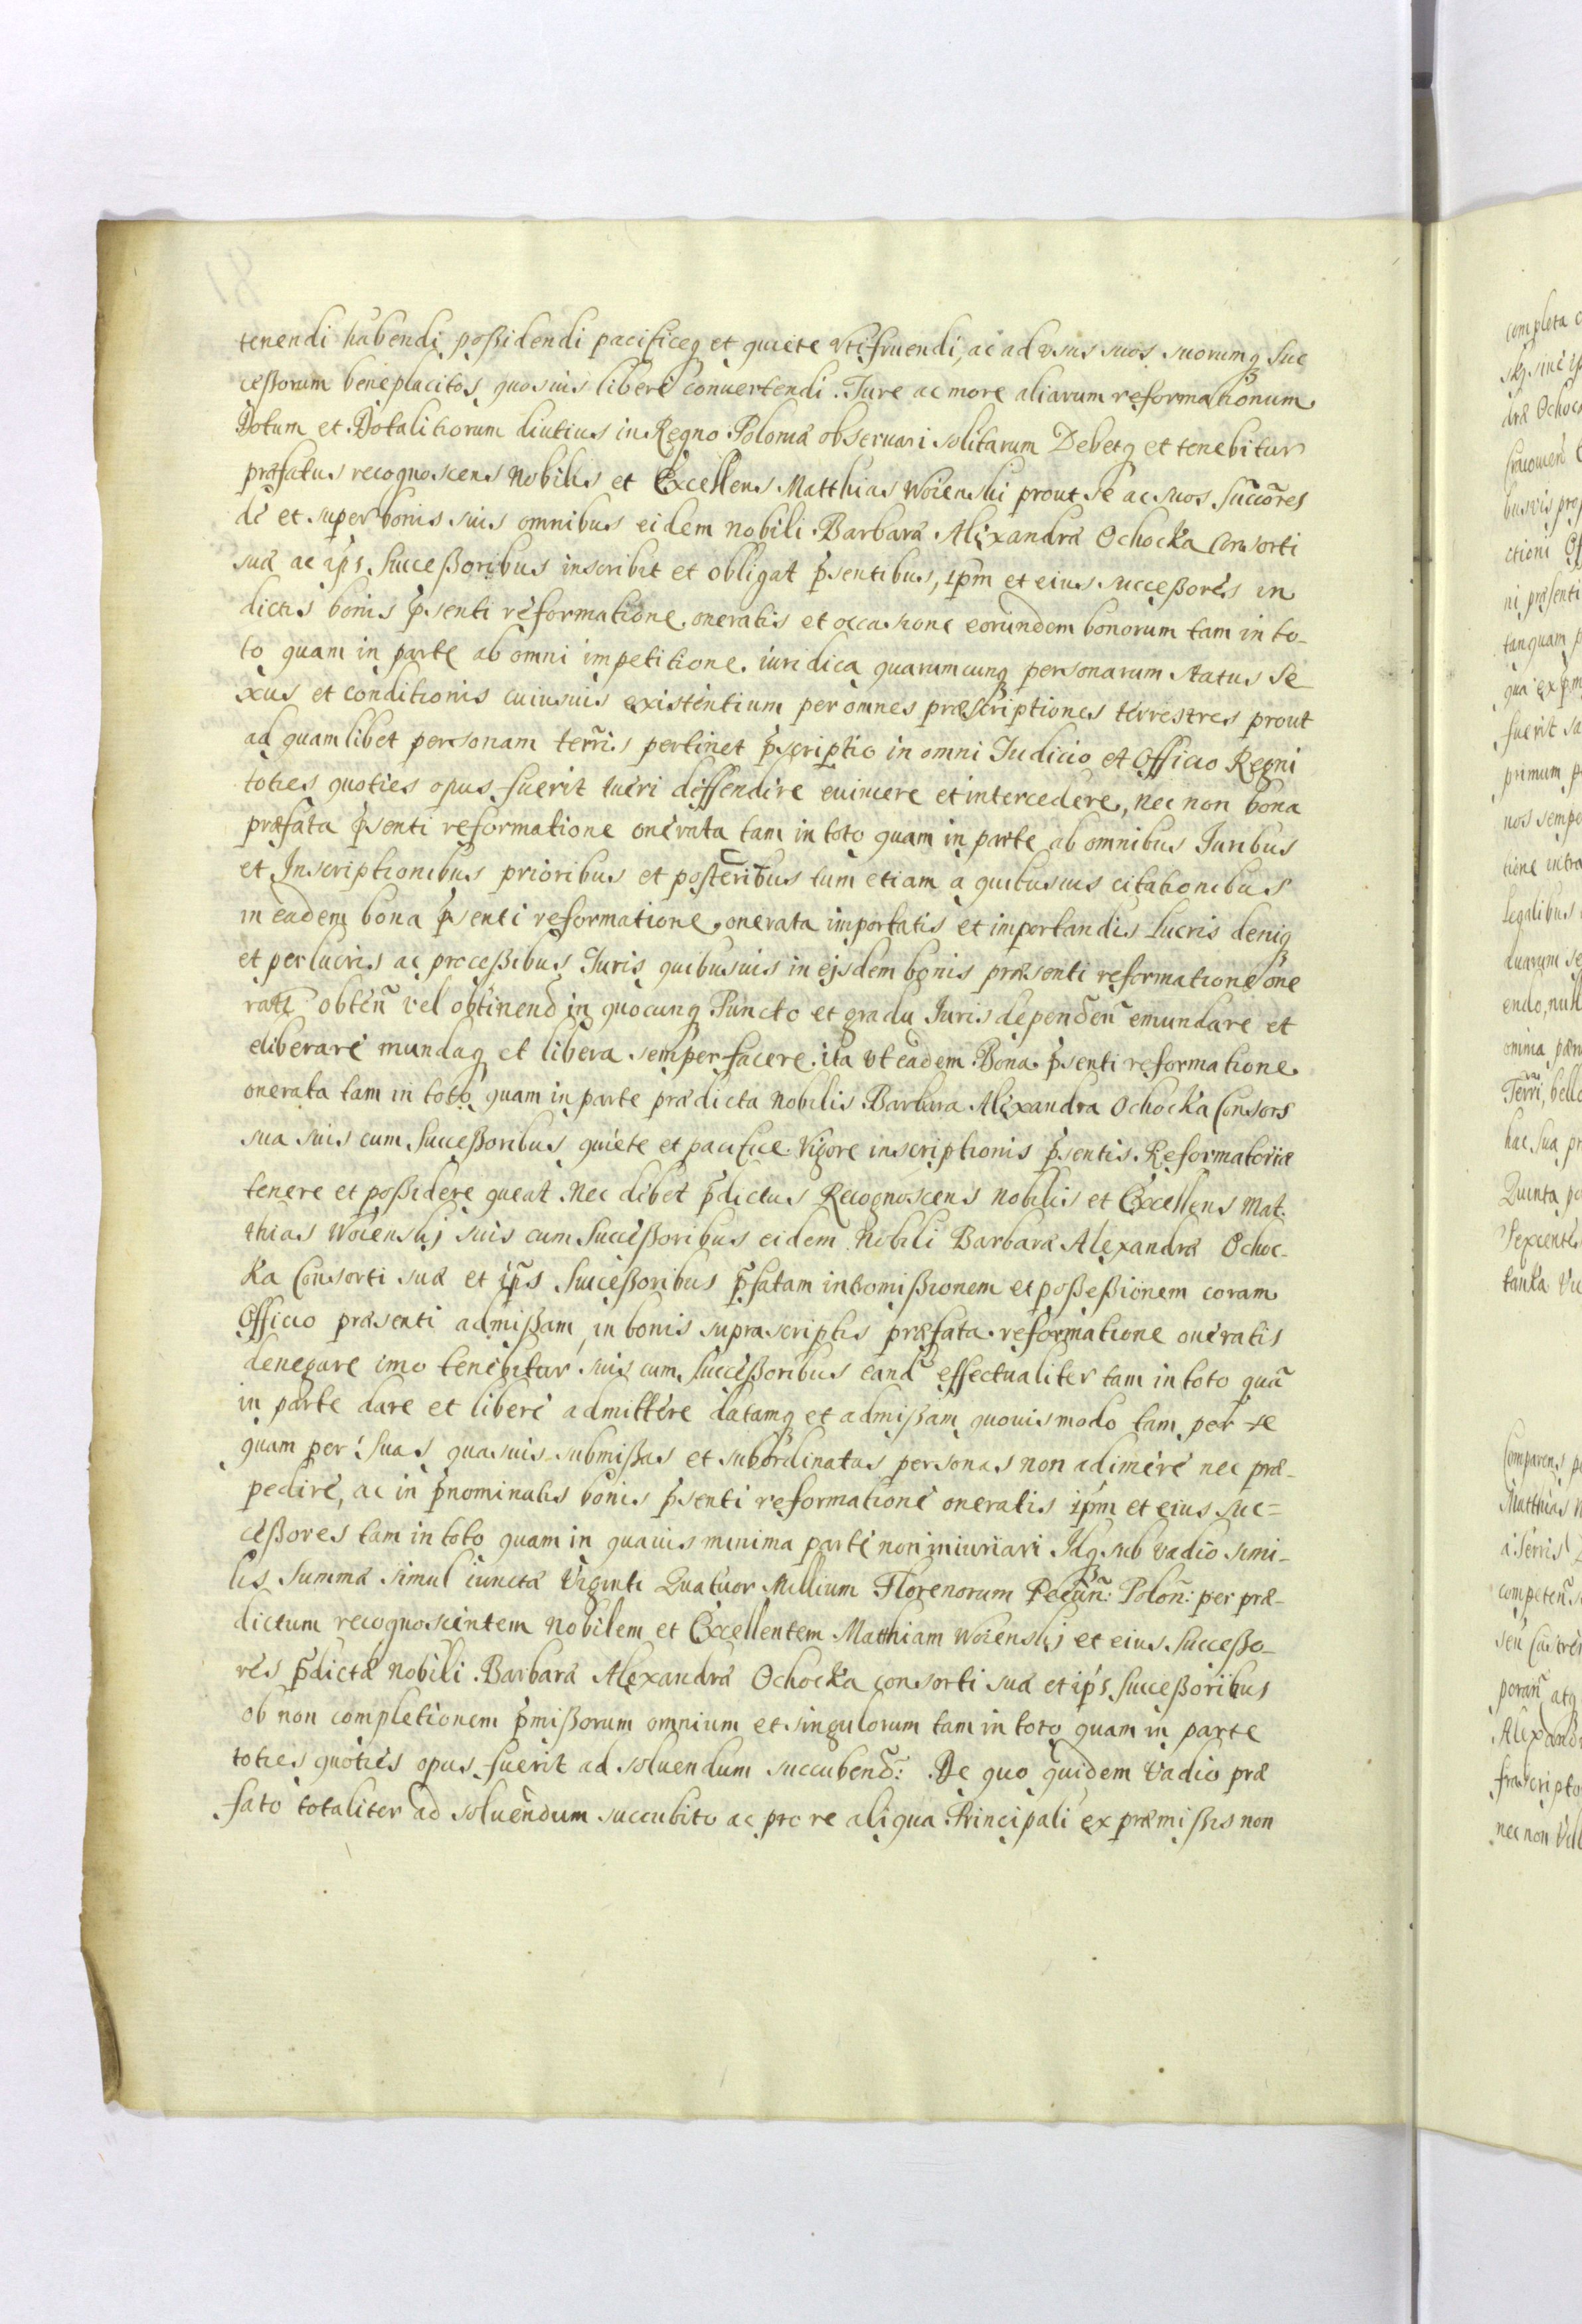 tenendi habendi poßidendi pacificeq et quiete vtifruendi, ac ad vsus suos suorumq Suc
ceßorum beneplacitos quosuis libere conuertendi. Jure ac more aliarum reformationum
Dotum et Dotalitiorum diutius in Regno Poloniæ obseruari solitarum Debetq et tenebitur
præfatus recognoscens Nobilis et Excellens Matthias Woienski prout se ac suos succõres
de et super bonis suis omnibus eidem nobili Barbaræ Alexandræ Ochocka Consorti
suæ ac ips. Succeßoribus inscribit et obligat p̃sentibus, ip̃m et eius succeßores in
dictis bonis p̃senti reformatione oneratis et occasione eorundem bonorum tam in to-
to quam in parte ab omni impetitione iuridica quarumcunq personarum status se
xus et conditionis cuiusuis existentium per omnes præscriptiones terrestres prout
ad quamlibet personam terr̃is pertinet p̃scriptio in omni Judicio et Officio Regni
toties quoties opus fuerit tueri deffendere euincere et intercedere, nec non bona
præfata p̃senti reformatione onerata tam in toto quam in parte ab omnibus Juribus
et Inscriptionibus prioribus et posterĩbus tum etiam a quibusuis citationibus
in eadem bona p̃senti reformatione onerata importatis et importandis Lucris deniq
et perlucris ac proceßibus Juris quibusuis in eisdem bonis præsenti reformatione one
ratis obteñ vel obtinend̃ in quocunq Puncto et gradu Juris dependeñ emundare et
eliberare mundaq et libera semper facere. ita vt eadem Bona p̃senti reformatione
onerata tam in toto quam in parte prædicta Nobilis Barbara Alexandra Ochocka Consors
sua suis cum Succeßoribus quiete et pacifice Vigore inscriptionis p̃sentis Reformatoriæ
tenere et poßidere queat. Nec debet p̃dictus Recognoscens Nobilis et Excellens Mat-
thias Woienskj suis cum Succeßoribus eidem Nobili Barbaræ Alexandræ Ochoc-
ka Consorti suæ et ip̃s Succeßoribus p̃fatam intromißionem et poßeßionem coram
Officio præsenti admißam in bonis suprascriptis præfata reformatione oneratis
denegare imo tenebitur suis cum Succeßoribus eand̃ effectualiter tam in toto quã
in parte dare et libere admittere datamq et admißam quouis modo tam per se
quam per suas quasuis submißas et subordinatas personas non adimere nec præ-
pedire, ac in p̃nominatis bonis p̃senti reformatione oneratis ip̃m et eius suc=
ceßores tam in toto quam in quauis minima parte non iniuriari Idq sub vadio simi-
lis Summæ simul iunctæ Viginti Quatuor Millium Florenorum Pecuñ: Poloñ: per præ-
dictum recognoscentem Nobilem et Excellentem Matthiam Woienskj et eius Succeßo-
res p̃dictæ nobili Barbaræ Alexandræ Ochocka consorti suæ et ips Succeßoribus
ob non completionem p̃mißorum omnium et singulorum tam in toto quam in parte
toties quoties opus fuerit ad soluendum succubend̃: De quo quidem Vadio præ
fato totaliter ad soluendum succubito ac pro re aliqua Principali ex præmißis non